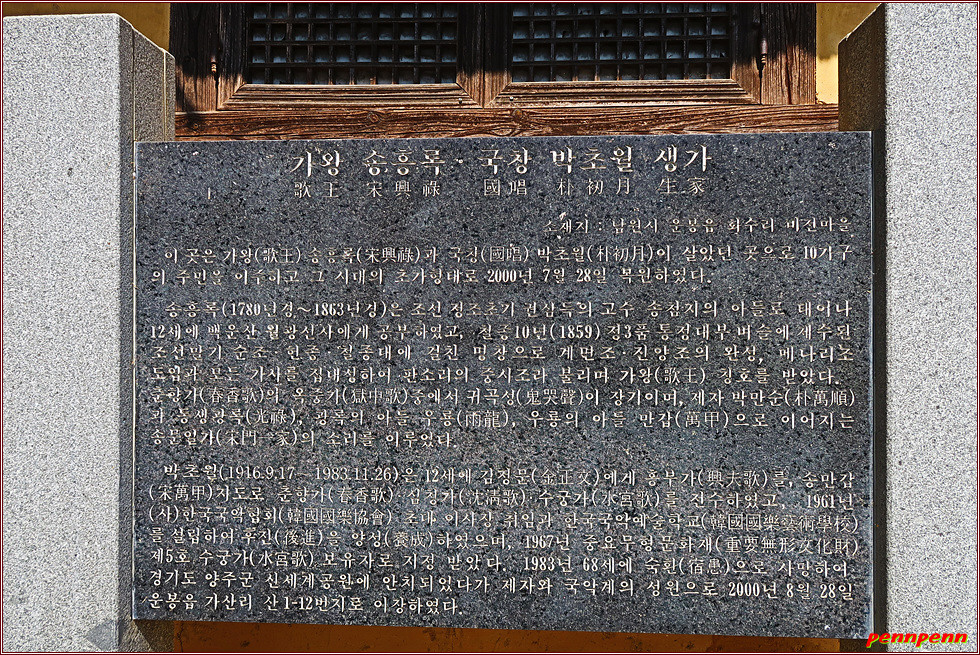 가왕 송흥록 · 국창 박초월 생가
歌王 宋興祿 國唱 朴初月 生家
소재지 : 남원시 운봉읍 화수리 비전마을
이 곳은 가왕(歌王) 송흥록(宋興祿)과 국창(國唱) 박초월(朴初月)이 살았던 곳으로 10기구
의 주민을 이주하고 그 시대의 초가형태로 2000년 7월 28일 복원하였다.
송흥록(1780년경~1863년경)은 조선 정조초기 권삼득의 고수 송첨지의 아들로 태어나
12세에 백운산 월광선사에게 공부하였고, 철종10년(1859) 정3품 통정대부 벼슬에 제수된
조선말기 순조·헌종·철종대에 걸친 명창으로 계면조·진양조의 완성, 메나리조
도입과 모든 가사를 집대성하여 판소리의 중시조라 불리며 가왕(歌王) 칭호를 받았다.
춘향가(春香歌)의 옥중가(獄中歌)중에서 귀곡성(鬼哭聲)이 장기이며, 제자 박만순(朴萬順)
과 동생광록(光祿), 광록의 아들 우룡(雨龍), 우룡의 아들 만갑(萬甲)으로 이어지는
송문일가(宋門一家)의 소리를 이루었다.
박초월(1916.9.17~1983.11.26)은 12세에 김정문(金正文)에게 흥부가(興夫歌)를, 송만갑
(宋萬甲)지도로 춘향가(春香歌)·심청가(沈淸歌)·수궁가(水宮歌)를 전수하였고, 1961년
(사)한국국악협회(韓國國樂協會) 초대 이사장 취임과 한국국악예술학교(韓國國樂藝術學校)
를 설립하여 후진(後進)을 양성(養成)하였으며, 1967년 중요무형문화재(重要無形文化財)
제5호 수궁가(水宮歌) 보유자로 지정 받았다. 1983년 68세에 숙환(宿患)으로 사망하여,
경기도 양주군 신세계공원에 안치되었다가 제자와 국악계의 성원으로 2000년 8월 28일
운봉읍 가산리 산 1-12번지로 이장하였다.
pennpenn